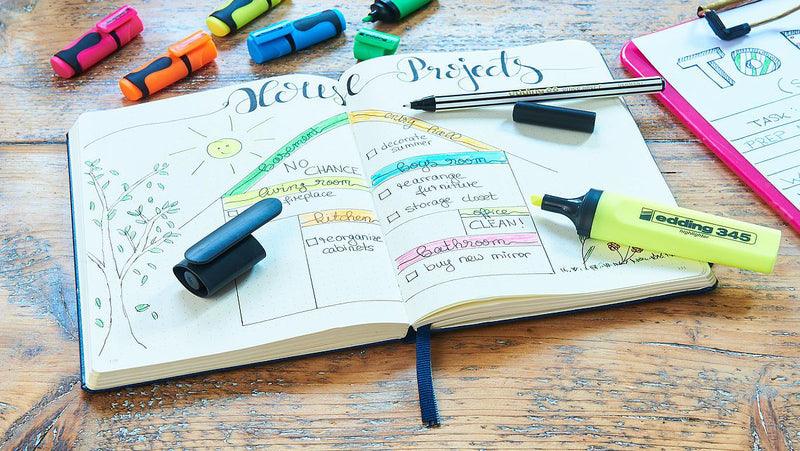 House Projects
basement
NO CHANCE
living room
fireplace
kitchen
reorganize
cabinets
entry hall
decorate
summer
boys room
rearrange
furniture
storage closet
office
CLEAN!
bathroom
buy new mirror
edding 345
highlighter
TO
TASK
PREP